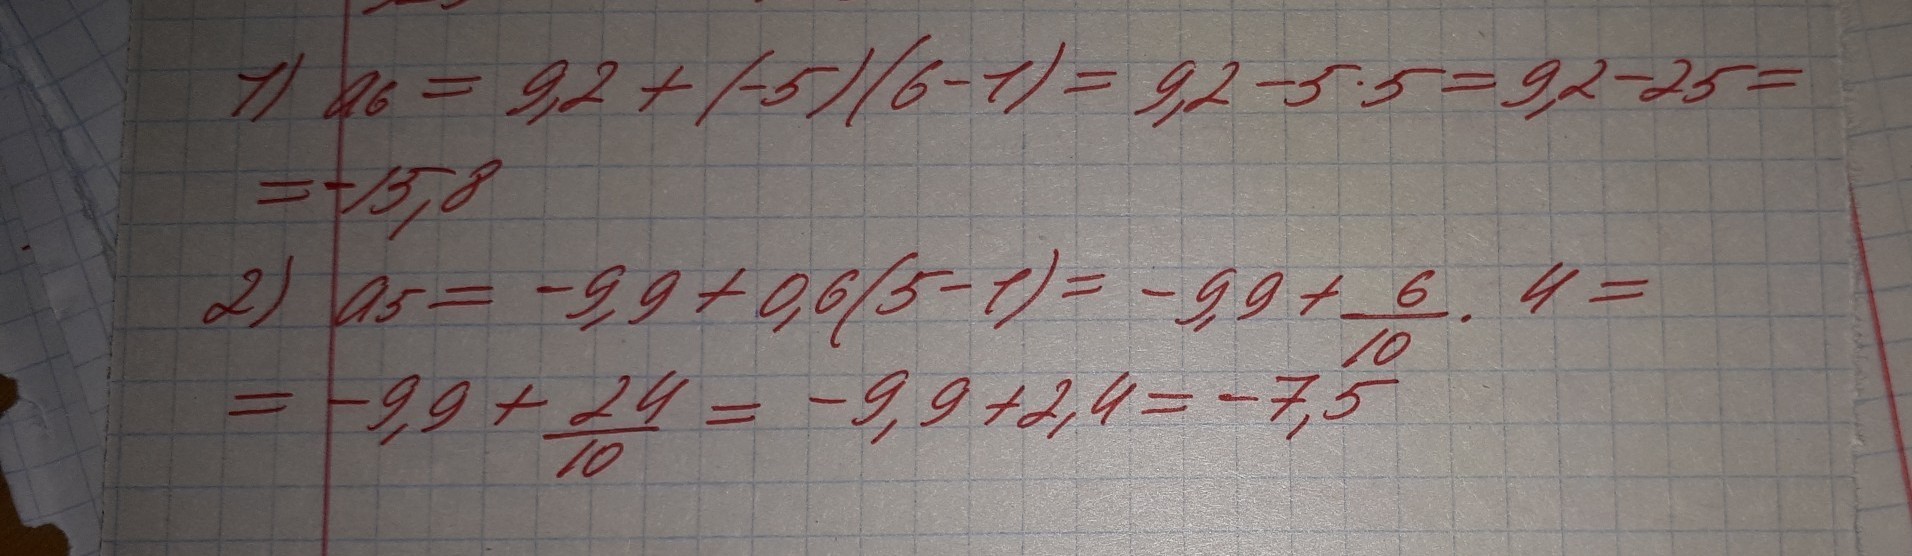 1) a₆ = 9,2 + (-5)(6-1) = 9,2 - 5·5 = 9,2 - 25 =
= -15,8
2) a₅ = -9,9 + 0,6(5-1) = -9,9 + 6/10 · 4 =
= -9,9 + 24/10 = -9,9 + 2,4 = -7,5